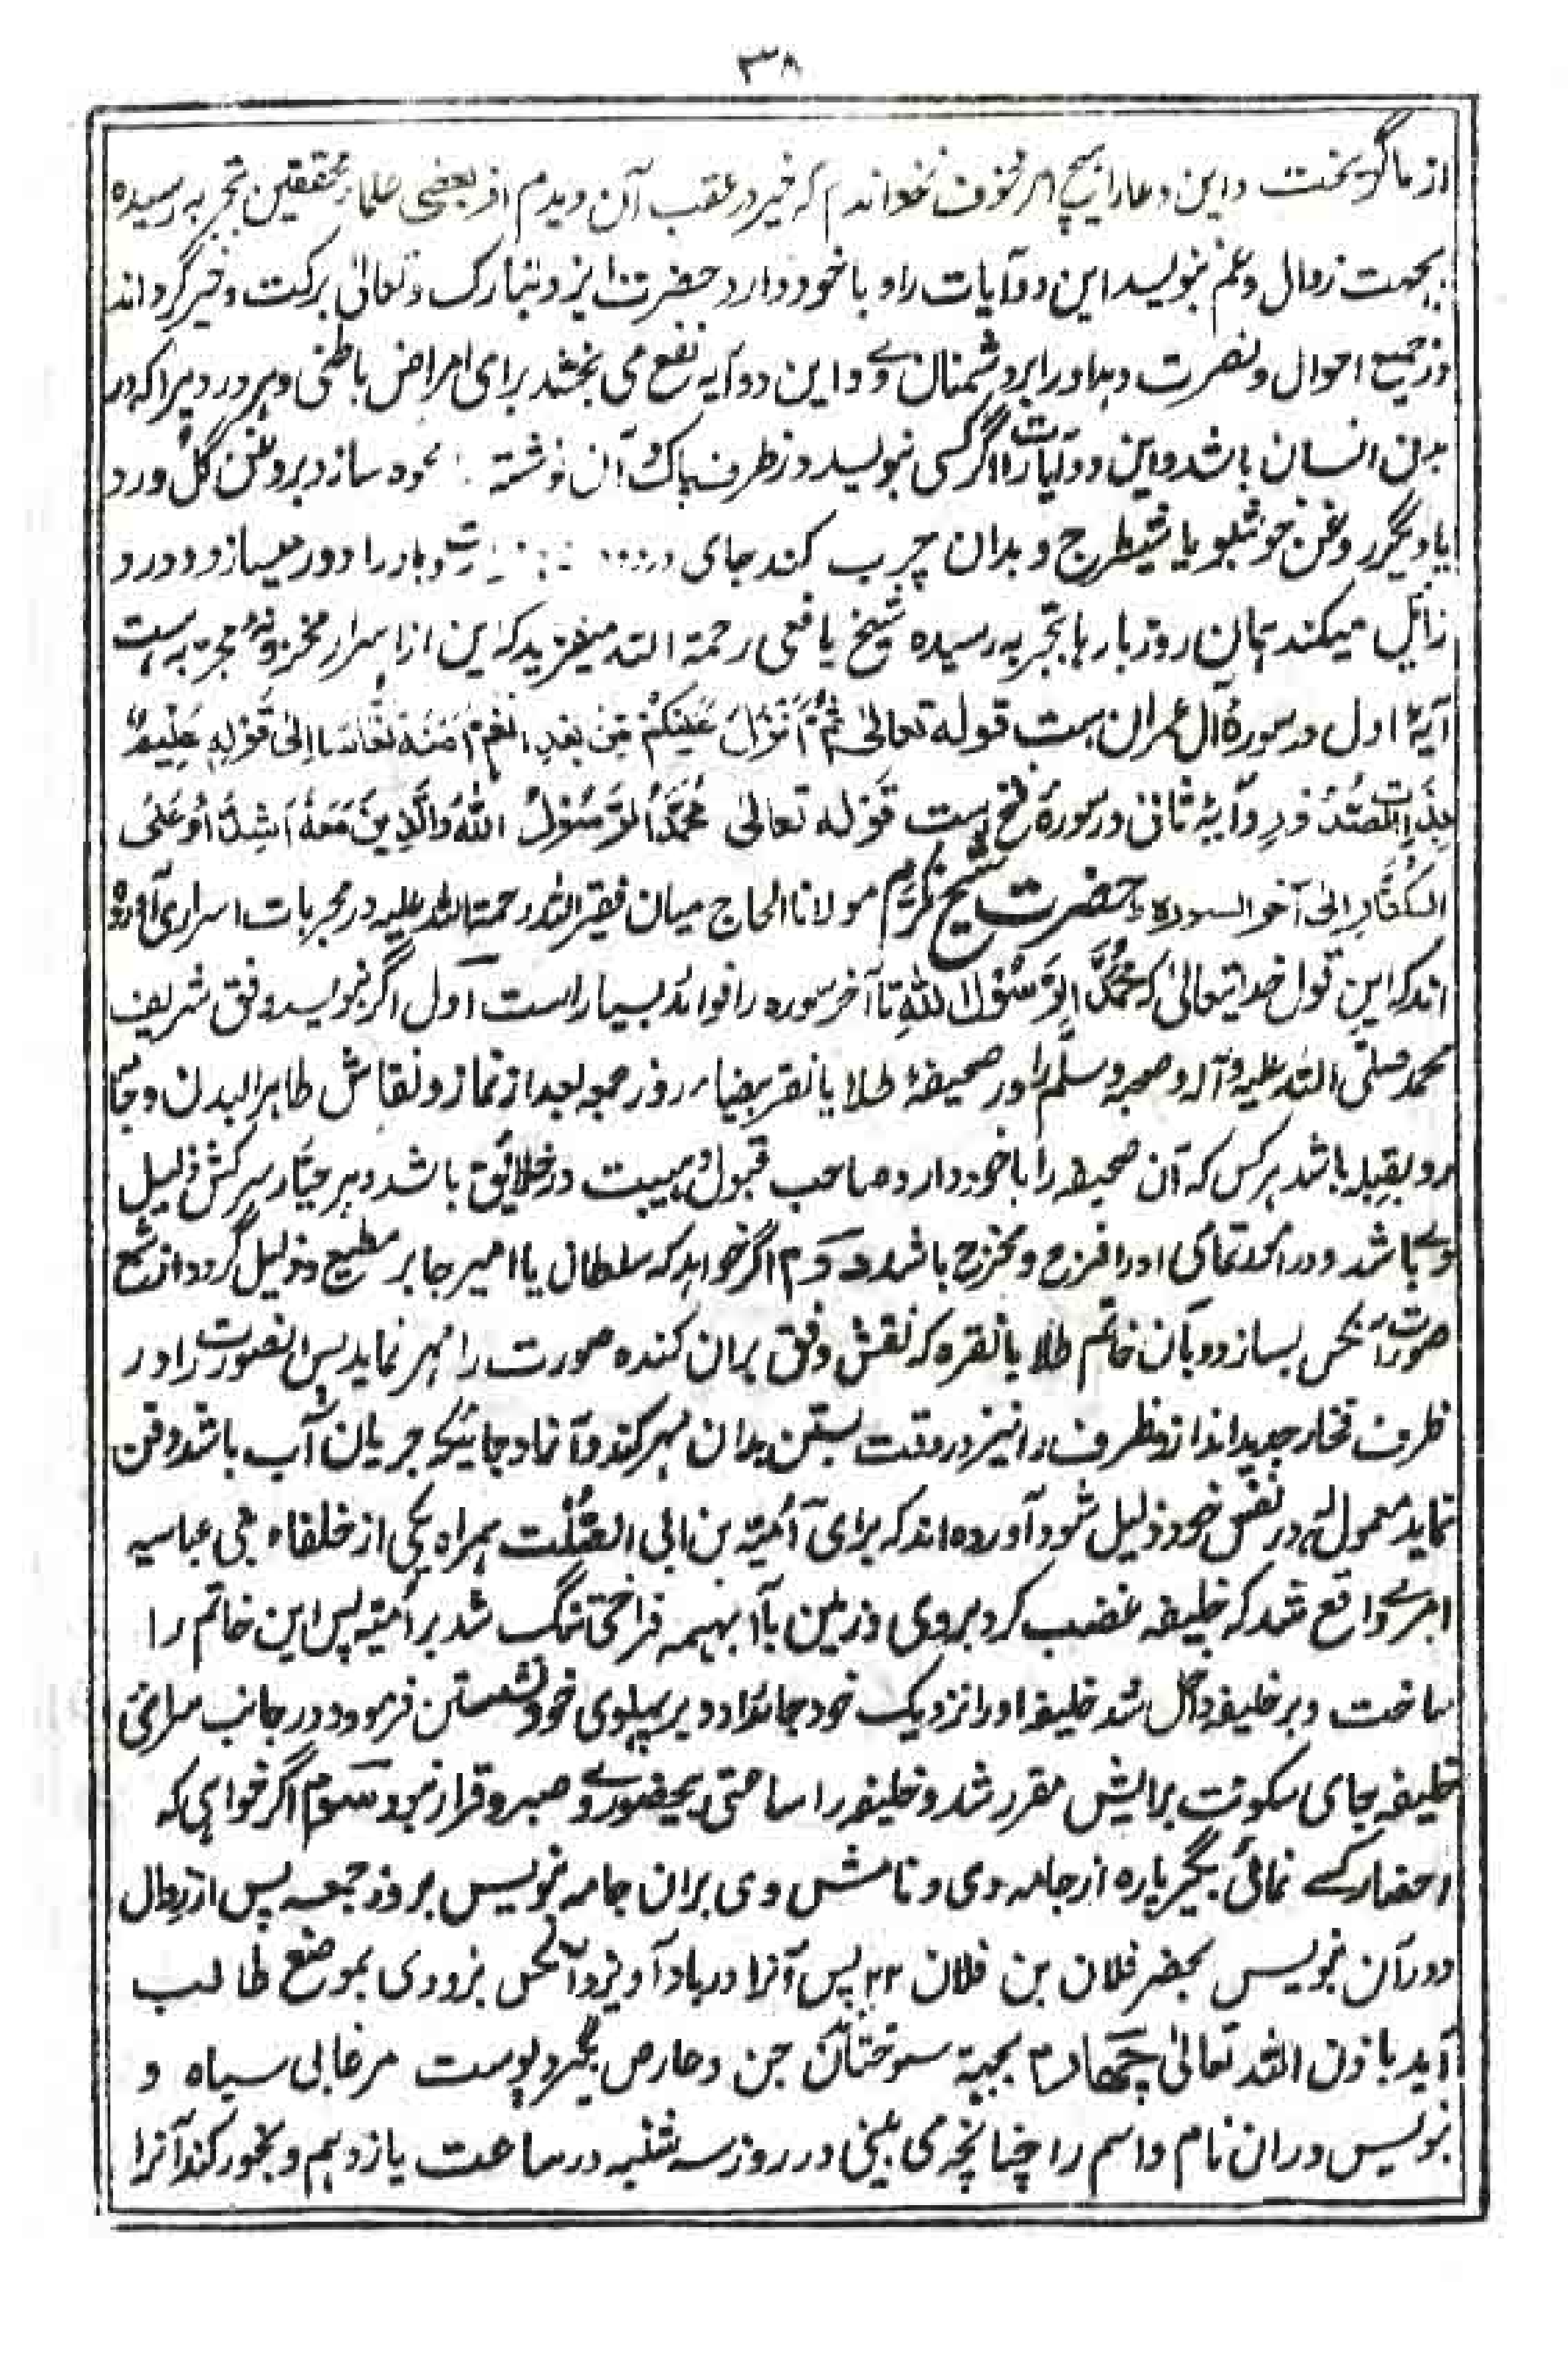 ۳۸
از ما گریخت و این دعا را هیچ امر مخوف نخواندم که خیر در عقب آن دیدم از بعضی علماء محققین تجربه رسیده
بجهت زوال و غم نبویسد این دو آیات را و با خود دارد حضرت ایزد تبارک و تعالیٰ برکت و خیر گرداند
در جمیع احوال و نصرت دهد او را بر دشمنان وے و این دو آیه نفع می بخشد برای امراض باطنی و هر درد را که در
بدن انسان باشد و این دو آیات را اگر کسی نبویسد در ظرف پاک و آن نوشته ساز و بروغن گل ورد
یا دیگر روغن خوشبو یا شیطرج و بدان چرب کند جای را دور میسازد و درد
زایل میکند همان روز بارها بتجربه رسیده شیخ یافعی رحمة الله میفرماید که این از اسرار مخزونه و مجربه است
آیۀ اول در سورۀ آل عمران است قوله تعالیٰ ثُمَّ أَنْزَلَ عَلَيْكُمْ مِنْ بَعْدِ الْغَمِّ أَمَنَةً نُعَاسًا اِلیٰ قَوْلِهٖ عَلِيْمٌ
بِذَاتِ الصُّدُوْرِ وآیۀ ثانی در سورۀ فتح است قوله تعالیٰ مُحَمَّدٌ الرَّسُوْلُ اللّٰهِ وَالَّذِيْنَ مَعَهٗ اَشِدَّآءُ عَلَى
الْكُفَّارِ الیٰ آخر السوره حضرت شیخ کریم مولانا الحاج میان فقیر الله رحمة الله علیه در مجربات اسراری آورده
اند که این قول خدا تعالیٰ که مُحَمَّدٌ الرَّسُوْلُ اللّٰهِ تا آخر سوره را فوائد بسیار است اول اگر نبویسد وفق شریف
محمد صلی الله علیه وآله وصحبه وسلم را در صحیفۀ طلا یا نقره بیضاء روز جمعه بعد از نماز و نقاش طاهر البدن و جا
رو بقبله باشد هر کس که آن صحیفه را با خود دارد صاحب قبول و هیبت در خلائق باشد و هر جبار سرکش ذلیل
وے باشد دوم اگر خواهد که سلطان یا امیر جابر مطیع و ذلیل گردد از شمع
صورت آنکس بسازد و بآن خاتم طلا یا نقره که نقش وفق بران کنده صورت را مهر نماید پس آنصورت را در
ظرف فخار جدید اندازد و ظرف را نیز در وقت بستن بدان مهر کند جائیکه جریان آب باشد دفن
نماید معمول له در نفس خود ذلیل شود آورده اند که برای اُمیّه بن ابی الصلت همراه یکی از خلفاء بنی عباسیه
امرے واقع شد که خلیفه غضب کرد بروی و زمین باآنهمه فراخی تنگ شد بر اُمیّه پس این خاتم را
ساخت و بر خلیفه داخل شد خلیفه او را نزدیک خود جا داد و بر پهلوی خود نشستن فرمود و در جانب سرائی
خلیفه بجای سکونت برایش مقرر شد و خلیفه را ساعتی بیحضوروے صبر و قرار نبود سوم اگر خواهی که
احضار کسے نمائی بگیر پاره از جامه وی و نامش وی بران جامه نبویس بروز جمعه پس از زوال
و در آن نبویس یحضر فلان بن فلان پس آنرا در باد آویز و آنکس بزودی بموضع طالب
آید باذن الله تعالیٰ چهارم بجهة سوختاندن جن و عارض بگیرد پوست مرغابی سیاه و
نبویس دران نام و اسم را چنانچه می بینی در روز سه شنبه در ساعت یازدهم و بخور کند آنرا